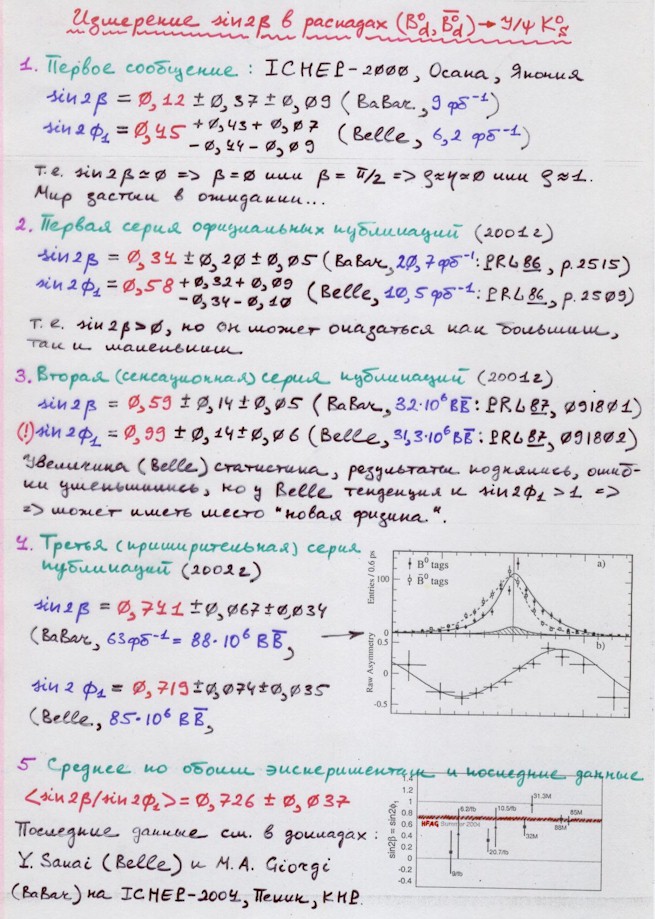 Измерение sin2β в распадах (B⁰_d, B̄⁰_d) → J/ψ K⁰_S
1. Первое сообщение: ICHEP-2000, Осака, Япония
sin2β = 0,12 ± 0,37 ± 0,09 (BaBar, 9 фб⁻¹)
sin2ϕ₁ = 0,45 +0,43 +0,07 −0,44 −0,09 (Belle, 6,2 фб⁻¹)
т.е. sin2β ≃ 0 => β = 0 или β = π/2 => ρ≈η≈0 или ρ≈1.
Мир застыл в ожидании...
2. Первая серия официальных публикаций (2001г)
sin2β = 0,34 ± 0,20 ± 0,05 (BaBar, 20,7 фб⁻¹: PRL 86, p.2515)
sin2ϕ₁ = 0,58 +0,32 +0,09 −0,34 −0,10 (Belle, 10,5 фб⁻¹: PRL 86, p.2509)
т.е. sin2β>0, но он может оказаться как большим,
так и маленьким
3. Вторая (сенсационная) серия публикаций (2001г)
sin2β = 0,59 ± 0,14 ± 0,05 (BaBar, 32·10⁶ BB̄: PRL 87, 091801)
(!) sin2ϕ₁ = 0,99 ± 0,14 ± 0,06 (Belle, 31,3·10⁶ BB̄: PRL 87, 091802)
Увеличина (Belle) статистика, результаты поднялись, ошиб-
ки уменьшились, но у Belle тенденция к sin2ϕ₁ > 1 =>
=> может иметь место "новая физика".
4. Третья (примирительная) серия
публикаций (2002г)
sin2β = 0,741 ± 0,067 ± 0,034
(BaBar, 63фб⁻¹ = 88·10⁶ BB̄,
sin2ϕ₁ = 0,719 ± 0,074 ± 0,035
(Belle, 85·10⁶ BB̄,
Entries / 0.6 ps
100
0
B⁰ tags
B̄⁰ tags
a)
Raw Asymmetry
0.5
0
-0.5
b)
5 Среднее по обоим экспериментам и последние данные
<sin2β/sin2ϕ₁> = 0,726 ± 0,037
Последние данные см. в докладах:
Y. Sakai (Belle) и M.A. Giorgi
(BaBar) на ICHEP-2004, Пекин, КНР.
sin2β = sin2ϕ₁
1.4
1.2
1
0.8
0.6
0.4
0.2
0
-0.2
-0.4
HFAG Summer 2004
9/fb
6.2/fb
20.7/fb
10.5/fb
32M
31.3M
88M
85M